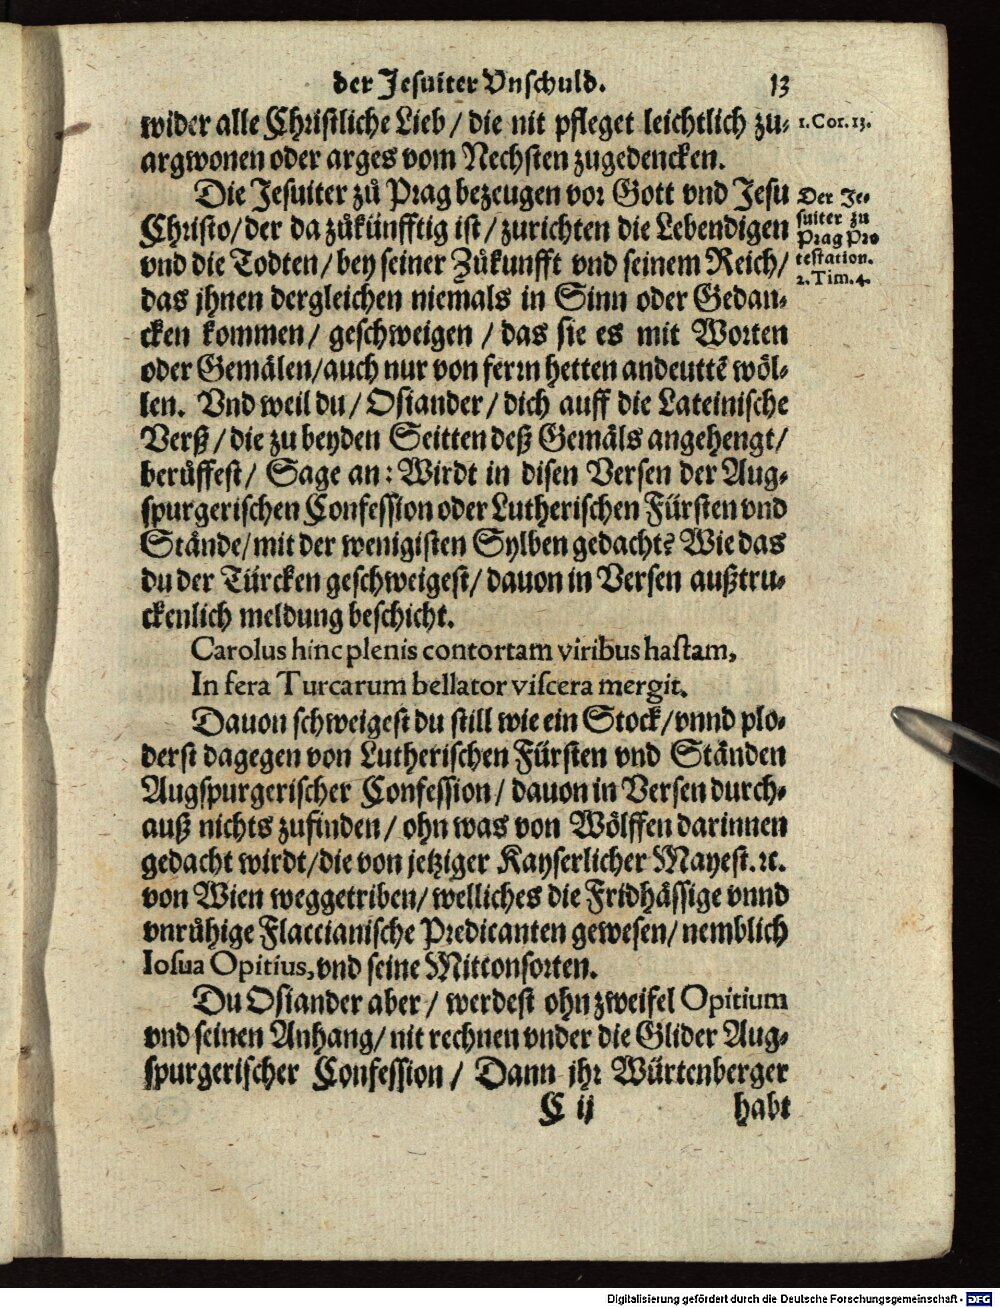 der Jesuiter Vnschuld. 13
wider alle Christliche Lieb / die nit pfleget leichtlich zu- 1. Cor. 13.
argwonen oder arges vom Nechsten zugedencken.
Die Jesuiter zů Prag bezeugen vor Gott vnd Jesu
Christo/ der da zůkünfftig ist / zurichten die Lebendigen
vnd die Todten / bey seiner Zůkunfft vnd seinem Reich/
das jhnen dergleichen niemals in Sinn oder Gedan-
cken kommen / geschweigen / das sie es mit Worten
oder Gemälen/auch nur von ferrn hetten andeuttē wöl-
len. Vnd weil du / Osiander / dich auff die Lateinische
Verß / die zu beyden Seitten deß Gemäls angehengt/
berůffest / Sage an: Wirdt in disen Versen der Aug-
spurgerischen Confession oder Lutherischen Fürsten vnd
Stände/ mit der wenigisten Sylben gedacht? Wie das
du der Türcken geschweigest / dauon in Versen außtru-
ckenlich meldung beschicht.
Carolus hinc plenis contortam viribus hastam,
In fera Turcarum bellator viscera mergit.
Dauon schweigest du still wie ein Stock / vnnd plo-
derst dagegen von Lutherischen Fürsten vnd Ständen
Augspurgerischer Confession / dauon in Versen durch-
auß nichts zufinden / ohn was von Wölffen darinnen
gedacht wirdt/die von jetziger Kayserlicher Mayest. ꝛc.
von Wien weggetriben/ welliches die Fridhässige vnnd
vnrůhige Flaccianische Predicanten gewesen/ nemblich
Iosua Opitius, vnd seine Mittonsorten.
Du Osiander aber / werdest ohn zweifel Opitium
vnd seinen Anhang / nit rechnen vnder die Glider Aug-
spurgerischer Confession / Dann jhr Würtenberger
C ij habt
Der Je-
suiter zu
Prag Pro
testation.
2. Tim. 4.
Digitalisierung gefördert durch die Deutsche Forschungsgemeinschaft - DFG